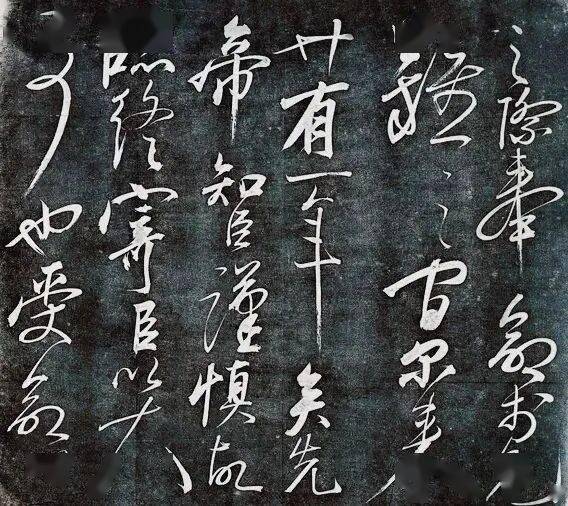 之際奉命於危
難之間尔来
廿有一年矣先
帝知臣謹慎故
臨終寄臣以大
事也受命